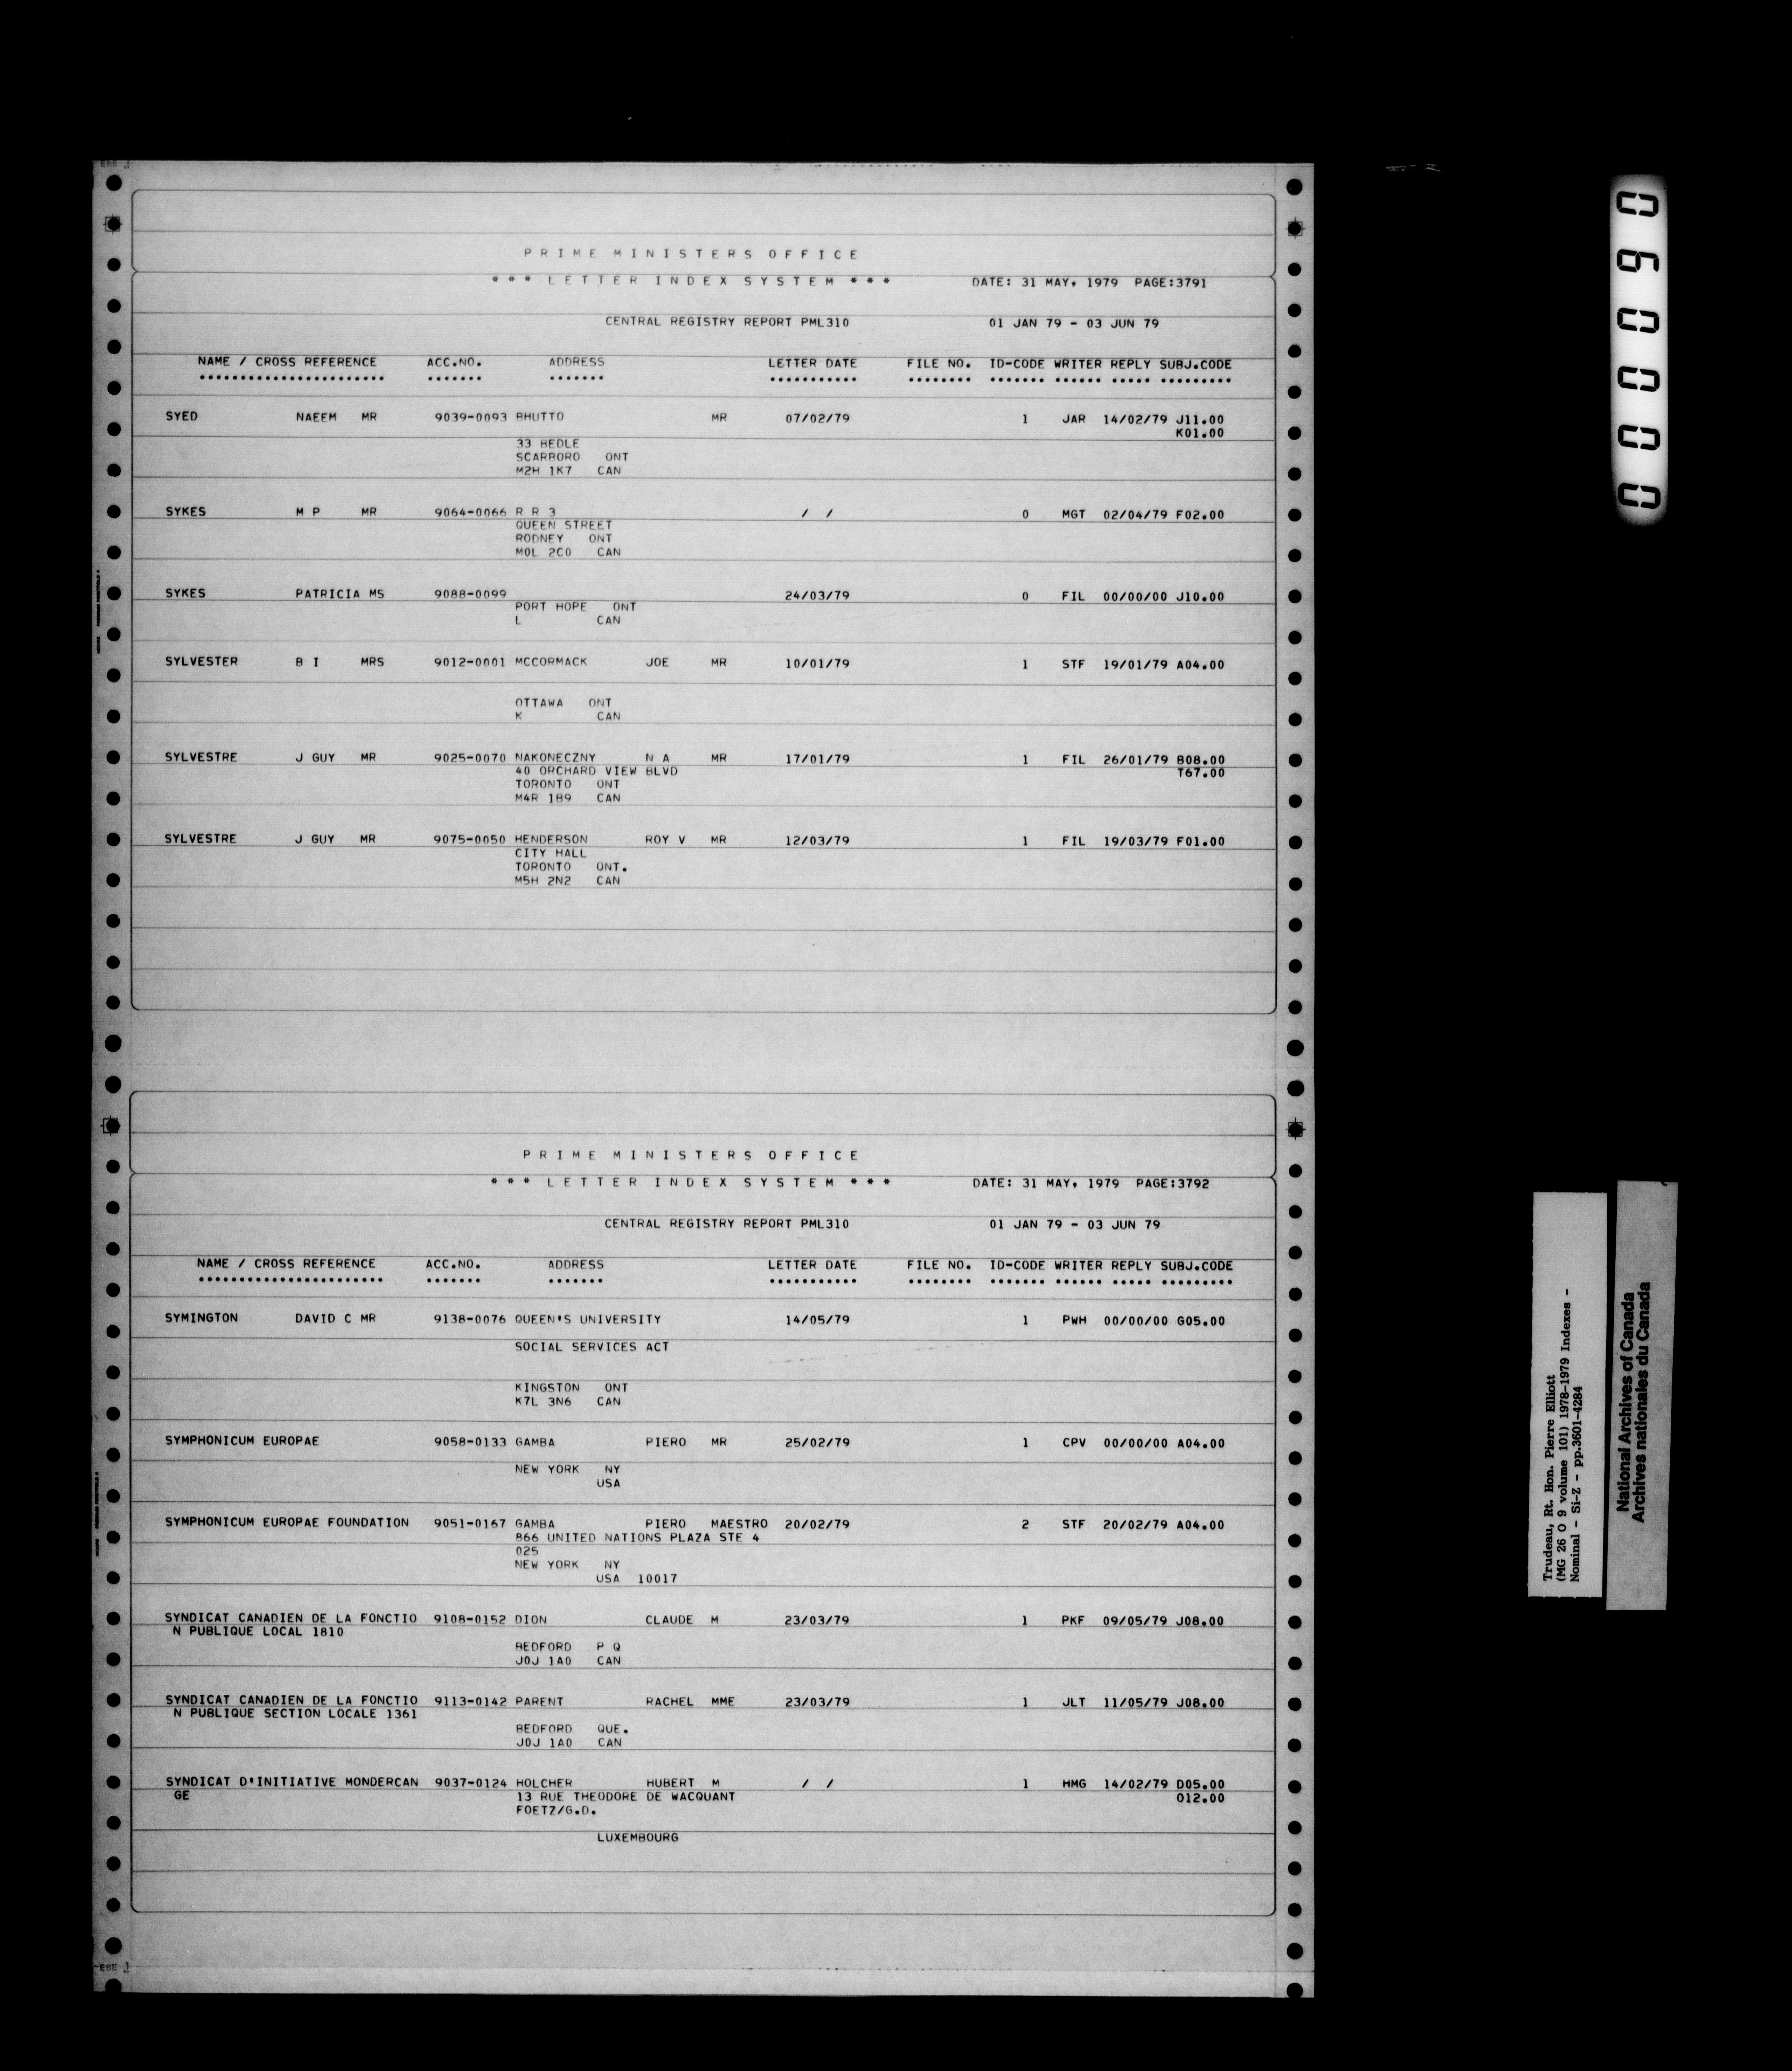 PRIME MINISTERS OFFICE
*** LETTER INDEX SYSTEM *** DATE: 31 MAY, 1979 PAGE:3791
CENTRAL REGISTRY REPORT PML310 01 JAN 79 - 03 JUN 79
NAME / CROSS REFERENCE ACC.NO. ADDRESS LETTER DATE FILE NO. ID-CODE WRITER REPLY SUBJ.CODE
SYED NAEEM MR 9039-0093 BHUTTO MR 07/02/79 1 JAR 14/02/79 J11.00
K01.00
33 BEDLE
SCARBORO ONT
M2H 1K7 CAN
SYKES M P MR 9064-0066 R R 3 / / 0 MGT 02/04/79 F02.00
QUEEN STREET
RODNEY ONT
M0L 2C0 CAN
SYKES PATRICIA MS 9088-0099 24/03/79 0 FIL 00/00/00 J10.00
PORT HOPE ONT
L CAN
SYLVESTER B I MRS 9012-0001 MCCORMACK JOE MR 10/01/79 1 STF 19/01/79 A04.00
OTTAWA ONT
K CAN
SYLVESTRE J GUY MR 9025-0070 NAKONECZNY N A MR 17/01/79 1 FIL 26/01/79 B08.00
40 ORCHARD VIEW BLVD T67.00
TORONTO ONT
M4R 1B9 CAN
SYLVESTRE J GUY MR 9075-0050 HENDERSON ROY V MR 12/03/79 1 FIL 19/03/79 F01.00
CITY HALL
TORONTO ONT.
M5H 2N2 CAN
PRIME MINISTERS OFFICE
*** LETTER INDEX SYSTEM *** DATE: 31 MAY, 1979 PAGE:3792
CENTRAL REGISTRY REPORT PML310 01 JAN 79 - 03 JUN 79
NAME / CROSS REFERENCE ACC.NO. ADDRESS LETTER DATE FILE NO. ID-CODE WRITER REPLY SUBJ.CODE
SYMINGTON DAVID C MR 9138-0076 QUEEN'S UNIVERSITY 14/05/79 1 PWH 00/00/00 G05.00
SOCIAL SERVICES ACT
KINGSTON ONT
K7L 3N6 CAN
SYMPHONICUM EUROPAE 9058-0133 GAMBA PIERO MR 25/02/79 1 CPV 00/00/00 A04.00
NEW YORK NY
USA
SYMPHONICUM EUROPAE FOUNDATION 9051-0167 GAMBA PIERO MAESTRO 20/02/79 2 STF 20/02/79 A04.00
866 UNITED NATIONS PLAZA STE 4
025
NEW YORK NY
USA 10017
SYNDICAT CANADIEN DE LA FONCTIO 9108-0152 DION CLAUDE M 23/03/79 1 PKF 09/05/79 J08.00
N PUBLIQUE LOCAL 1810
BEDFORD P Q
J0J 1A0 CAN
SYNDICAT CANADIEN DE LA FONCTIO 9113-0142 PARENT RACHEL MME 23/03/79 1 JLT 11/05/79 J08.00
N PUBLIQUE SECTION LOCALE 1361
BEDFORD QUE.
J0J 1A0 CAN
SYNDICAT D'INITIATIVE MONDERCAN 9037-0124 HOLCHER HUBERT M / / 1 HMG 14/02/79 D05.00
GE 13 RUE THEODORE DE WACQUANT O12.00
FOETZ/G.D.
LUXEMBOURG
000060
Trudeau, Rt. Hon. Pierre Elliott
(MG 26 O 9 volume 101) 1978-1979 Indexes -
Nominal - Si-Z - pp.3601-4284
National Archives of Canada
Archives nationales du Canada